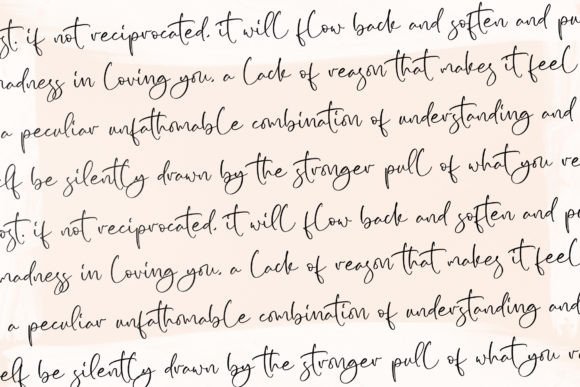 ost. if not reciprocated. it will flow back and soften and pu
madness in loving you. a lack of reason that makes it feel
a peculiar unfathomable combination of understanding and
elf be silently drawn by the stronger pull of what you re
ost. if not reciprocated. it will flow back and soften and pu
madness in loving you. a lack of reason that makes it feel
a peculiar unfathomable combination of understanding and
elf be silently drawn by the stronger pull of what you re